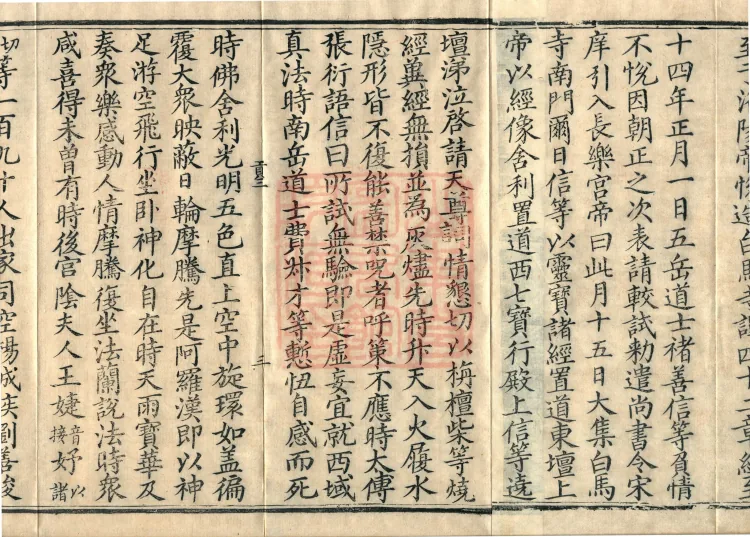 洛陽帝悅造白馬寺譯四十二章經至
十四年正月一日五岳道士褚善信等負情
不悅因朝正之次表請較試勑遣尚書令宋
庠引入長樂宮帝曰此月十五日大集白馬
寺南門爾日信等以靈寶諸經置道東壇上
帝以經像舍利置道西七寶行殿上信等遶
壇涕泣啓請天尊詞情懇切以栴檀柴等燒
經冀經無損並為灰燼先時升天入火履水
隱形皆不復能善禁呪者呼策不應時太傅
張衍語信曰所試無驗即是虛妄宜就西域
真法時南岳道士費叔才等慙忸自感而死
二
時佛舍利光明五色直上空中旋環如盖徧
覆大衆映蔽日輪摩騰先是阿羅漢即以神
足游空飛行坐卧神化自在時天雨寶華及
奏衆樂感動人情摩騰復坐法蘭說法時衆
咸喜得未曾有時後宮陰夫人王婕音接妤以諸
切等一百九十人出家司空陽城矦劉善峻